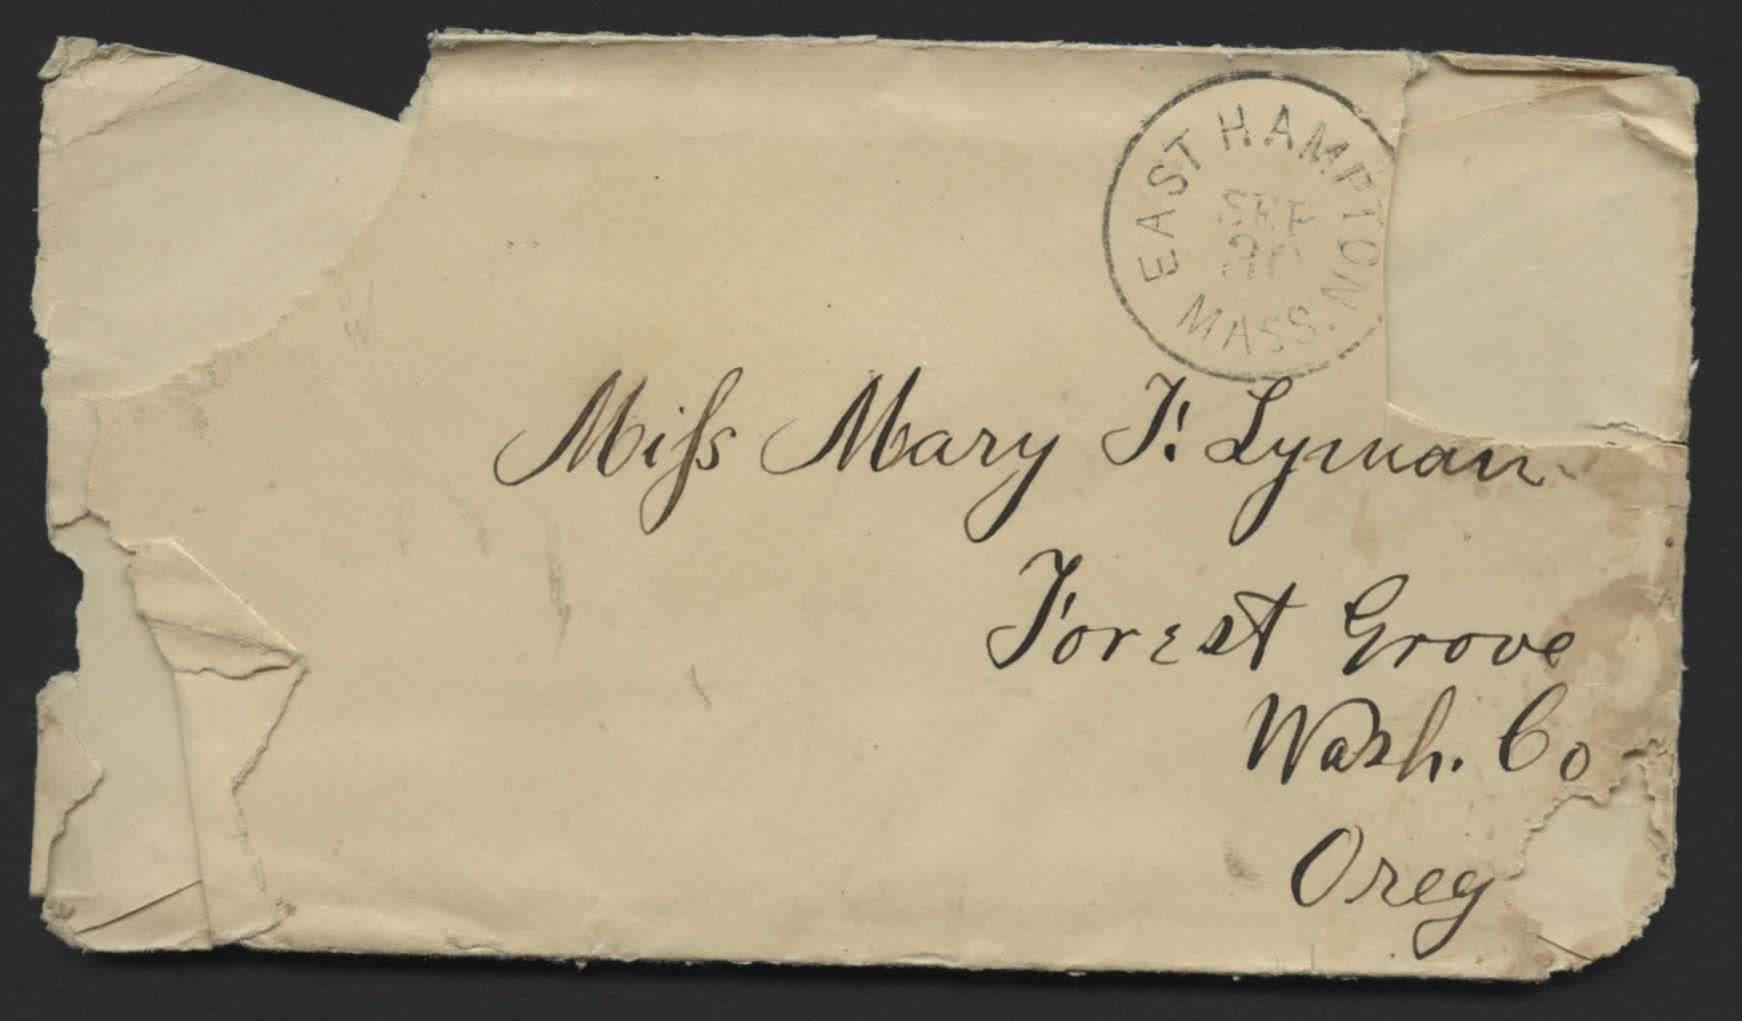 EAST HAMPTON
SEP
MASS.
Miss Mary F. Lyman
Forest Grove
Wash. Co
Oreg